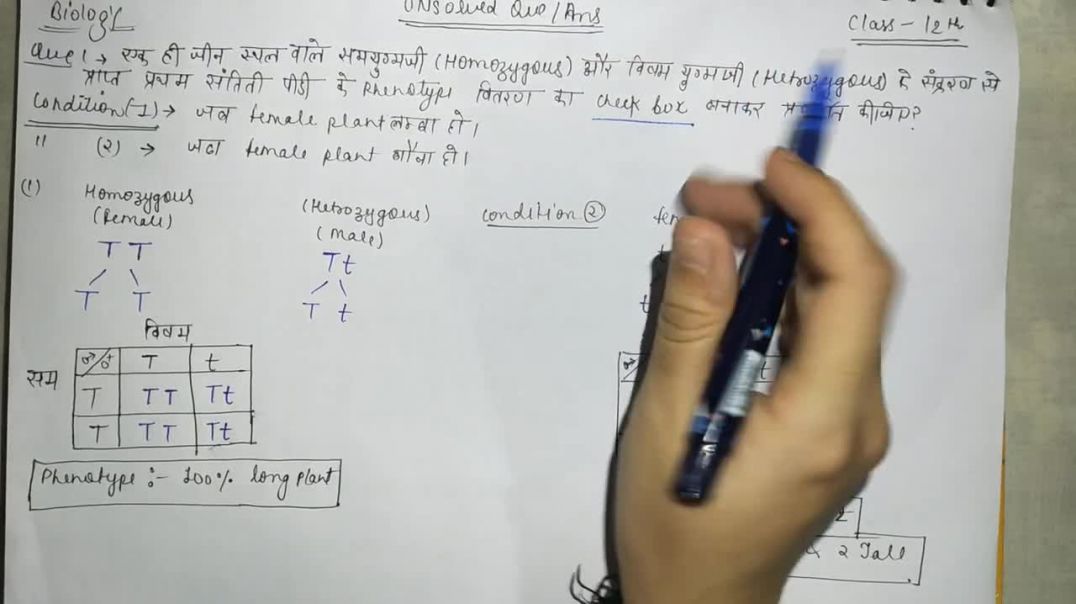 Biology
UNSolved Que/Ans
Class - 12th
Que 1 → एक ही जीन स्थल वाले समयुग्मजी (Homozygous) और विषम युग्मजी (Hetrozygous) के संकरण से
प्राप्त प्रथम संतिती पीढी के Phenotype वितरण का check box बनाकर कीजिए?
Condition (1) → जब female plant लम्बा हो।
" (2) → जब female plant बौना हो।
(1) Homozygous
(Female)
TT
T T
(Hetrozygous)
(Male)
Tt
T t
condition ②
विषम
सम
♂/♀ T t
T TT Tt
T TT Tt
Phenotype :- 100% long plant
t
2 Tall